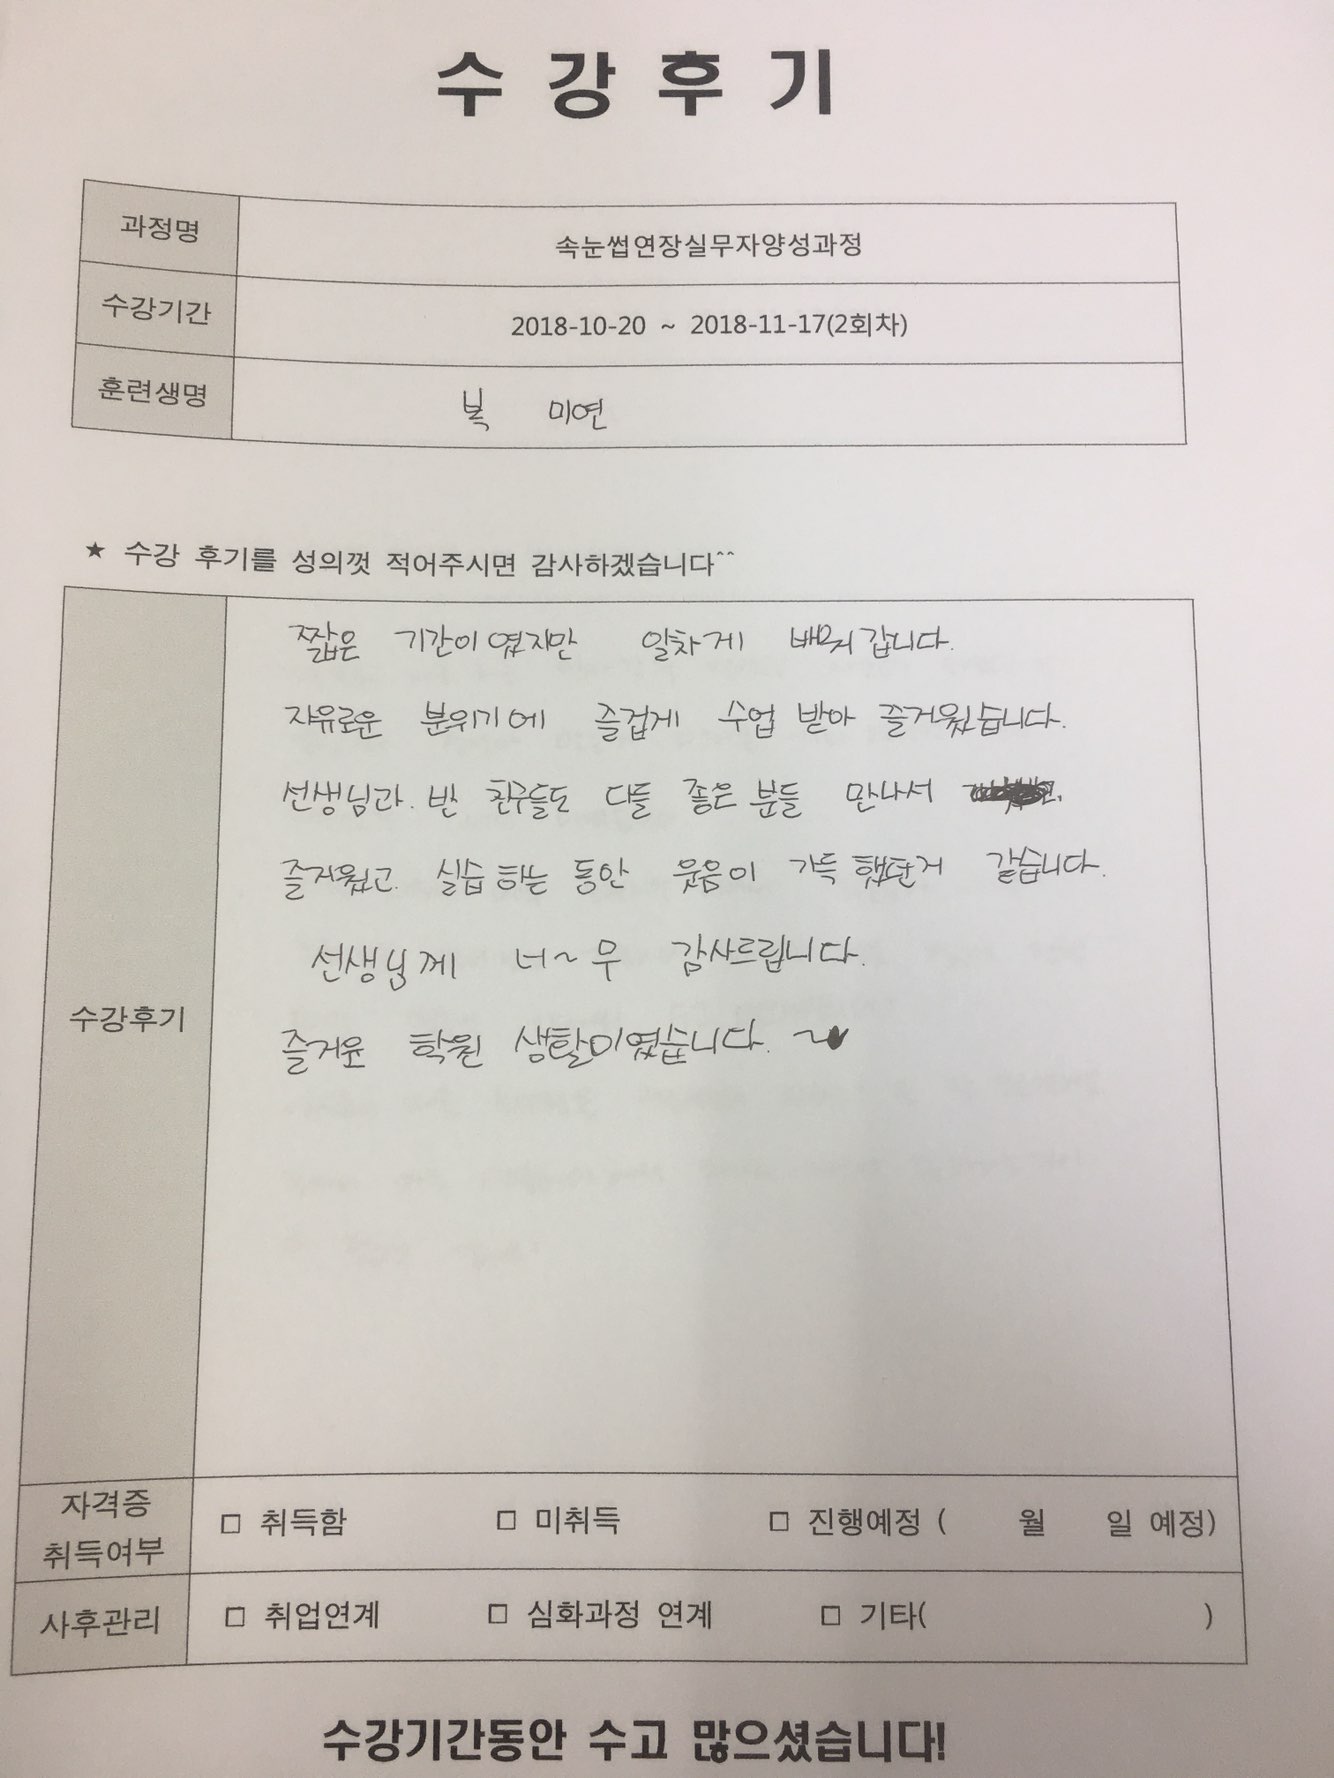 수강후기
과정명 속눈썹연장실무자양성과정
수강기간 2018-10-20 ~ 2018-11-17(2회차)
훈련생명 복 미연
★ 수강 후기를 성의껏 적어주시면 감사하겠습니다^^
짧은 기간이였지만 알차게 배워갑니다.
자유로운 분위기에 즐겁게 수업 받아 즐거웠습니다.
선생님과. 반 친구들도 다들 좋은 분들 만나서
즐거웠고 실습하는 동안 웃음이 가득 했던거 같습니다.
선생님께 너~무 감사드립니다.
수강후기
즐거운 학원 생활이였습니다. ~♥
자격증
취득여부
□ 취득함 □ 미취득 □ 진행예정 ( 월 일 예정)
사후관리 □ 취업연계 □ 심화과정 연계 □ 기타( )
수강기간동안 수고 많으셨습니다!